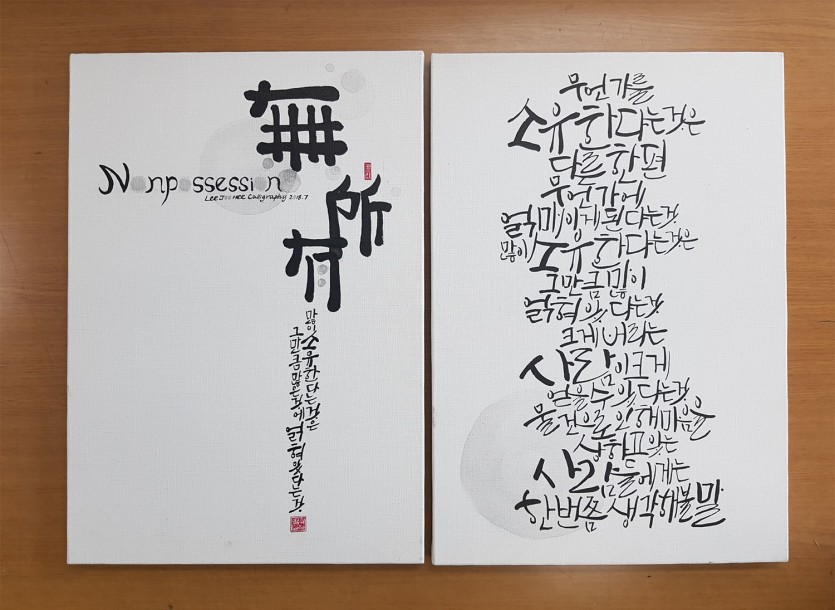 無
所
有
Nonpossession
LEE Joo HEE Calligraphy 2018.7
많이 소유한다는것은
그만큼많은것에 얽혀있다는것
무언가를
소유한다는것은
다른한편
무언가에
얽매이게된다는것
많이소유한다는것은
그만큼많이
얽혀있다는것
크게버리는
사람이크게
얻을수있다는것
물건으로인해마음을
상하고있는
사람들에게는
한번쯤생각해볼말